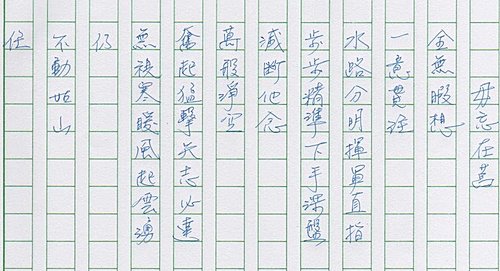 毋忘在莒
全無暇想
一意貫注
水路分明揮軍直指
步步精準下手深盤
滅斷他念
萬般淨空
奮起猛擊矢志必達
無視寒暖風起雲湧
仍
不動如山
任